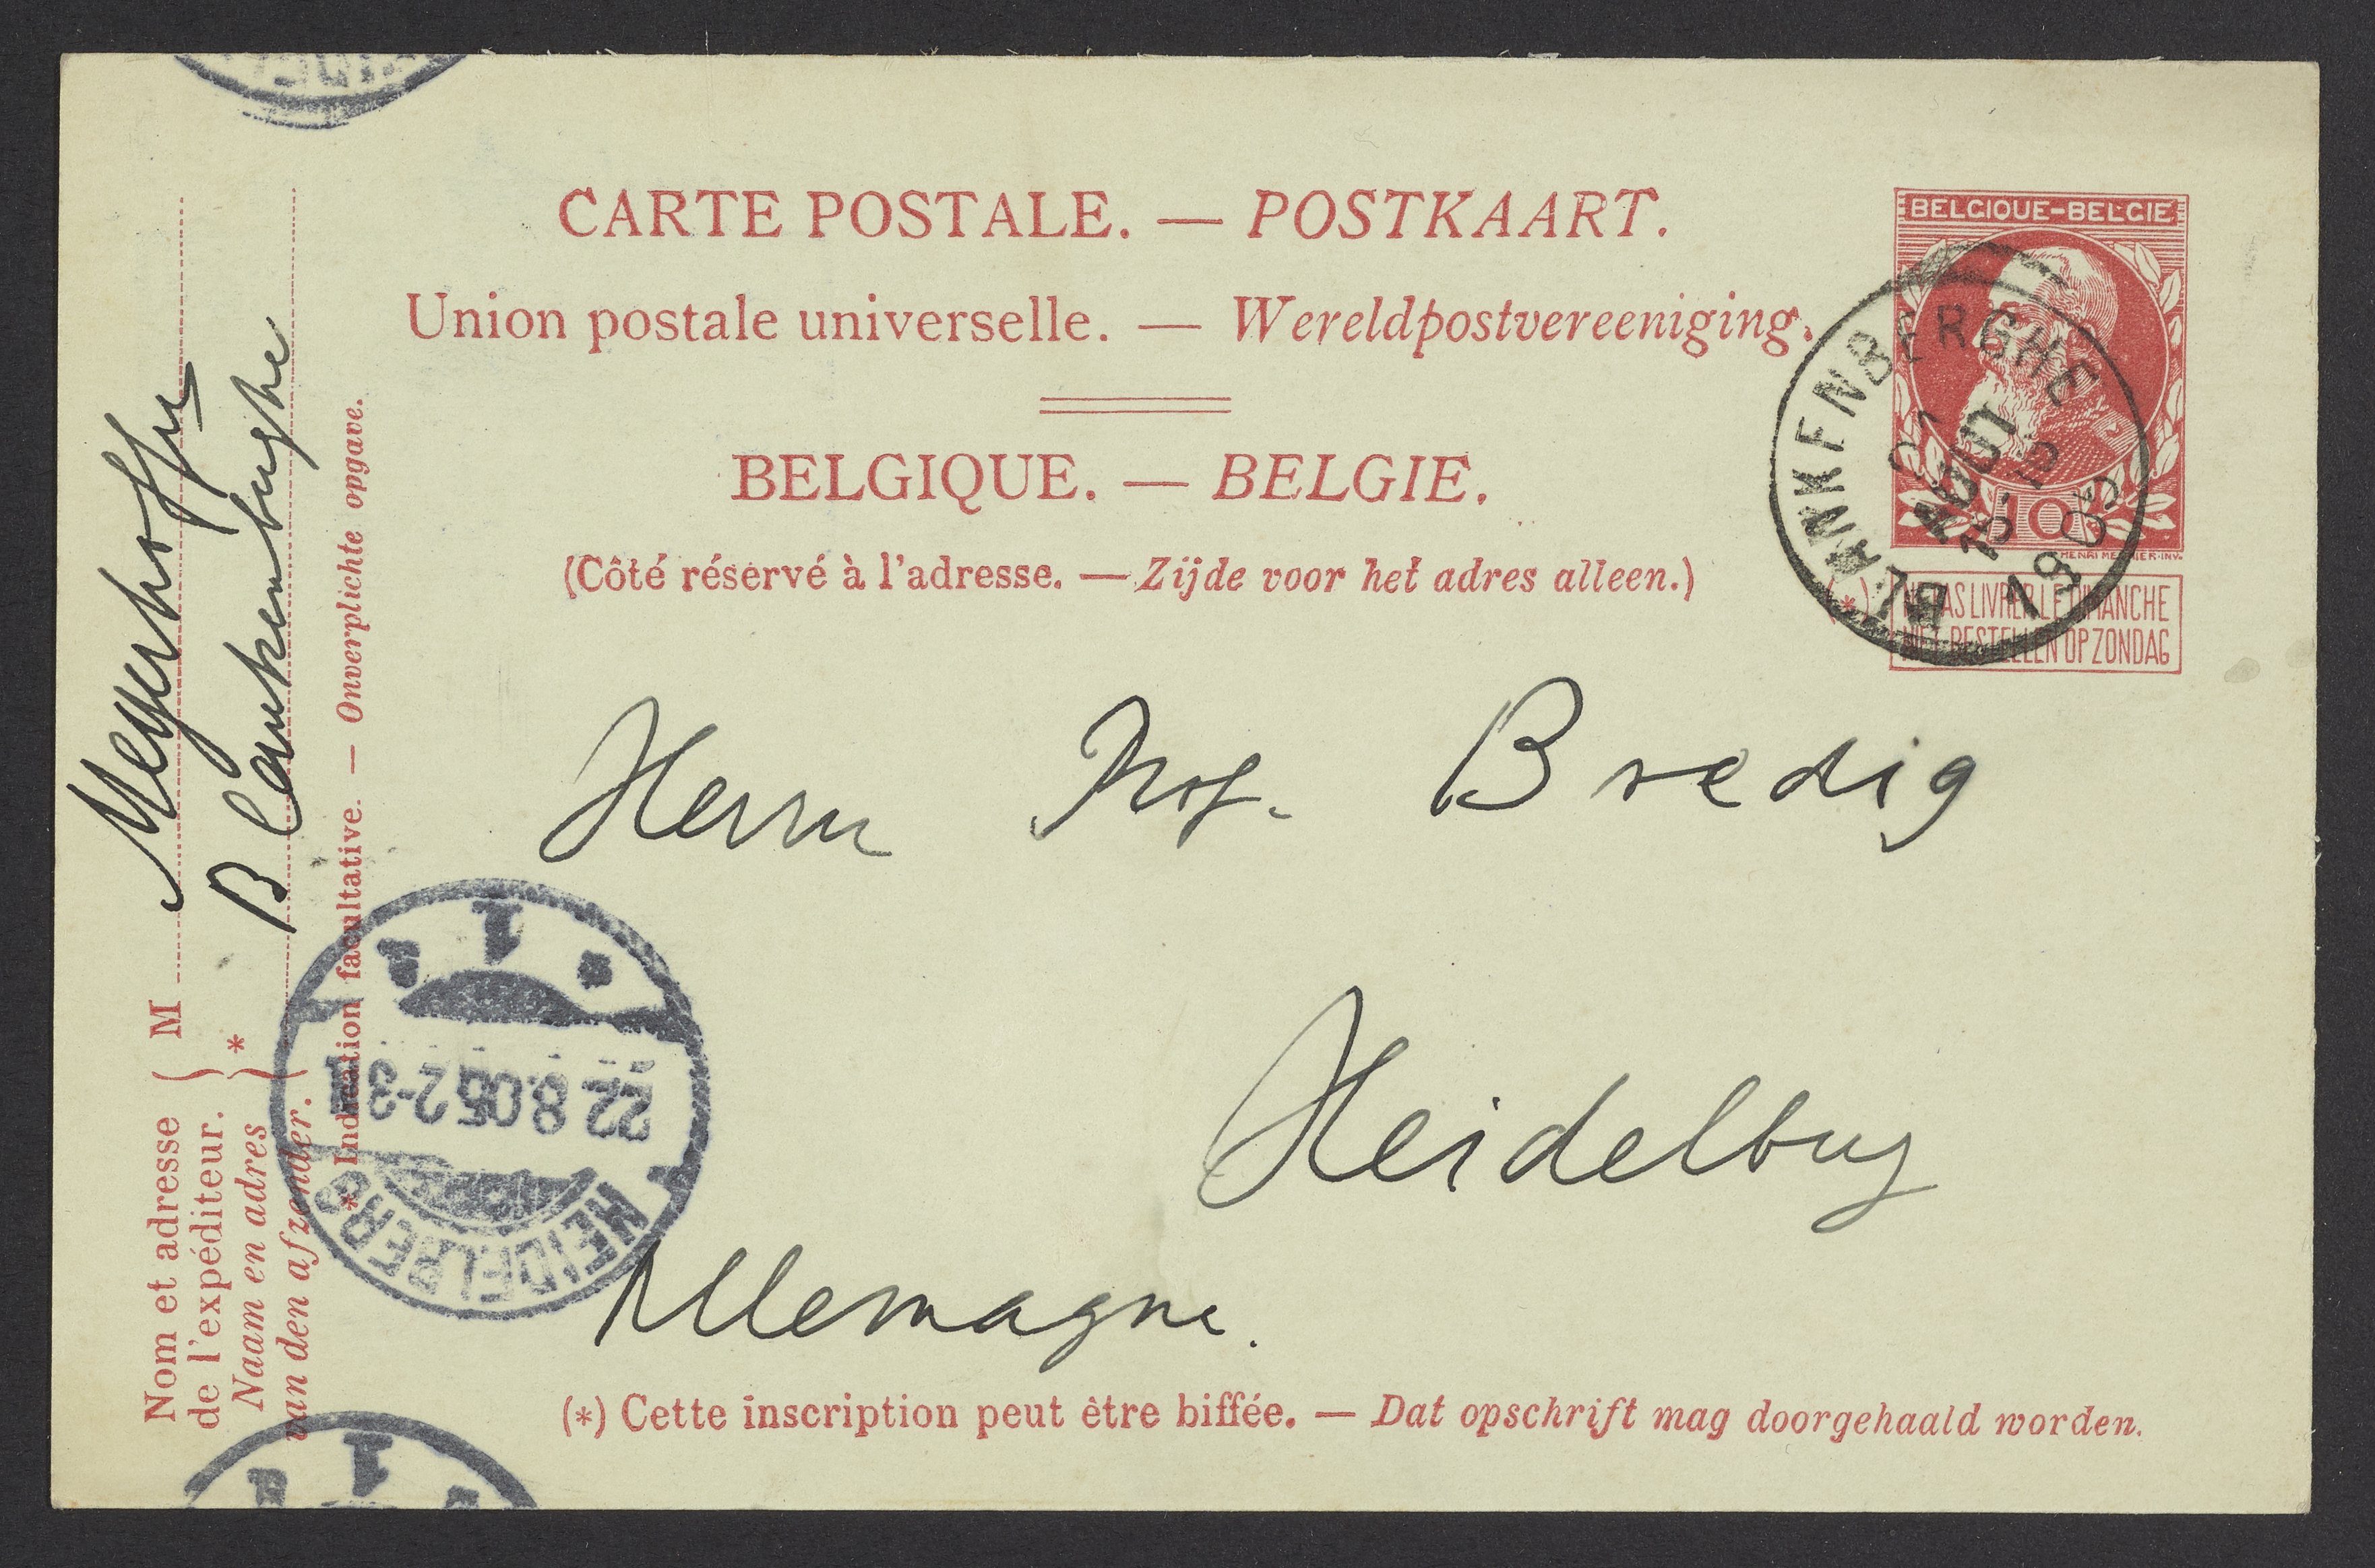 CARTE POSTALE. — POSTKAART.
Union postale universelle. — Wereldpostvereeniging.
BELGIQUE. — BELGIE.
(Côté réservé à l'adresse. — Zijde voor het adres alleen.)
BELGIQUE-BELGIE
10
HENRI MEUNIER·INV.
BLANKENBERGHE
21
AOUT
18-19
1905
(*) NE PAS LIVRER LE DIMANCHE
NIET BESTELLEN OP ZONDAG
Herrn Prof. Bredig
Heidelberg
Allemagne.
(*) Cette inscription peut être biffée. — Dat opschrift mag doorgehaald worden.
Nom et adresse de l'expéditeur.
Naam en adres van den afzender. *
M Meyerhoffer
Blankenberghe
* Indication facultative. — Onverplichte opgave.
HEIDELBERG
22.8.05 2-3N
* 1 a
1